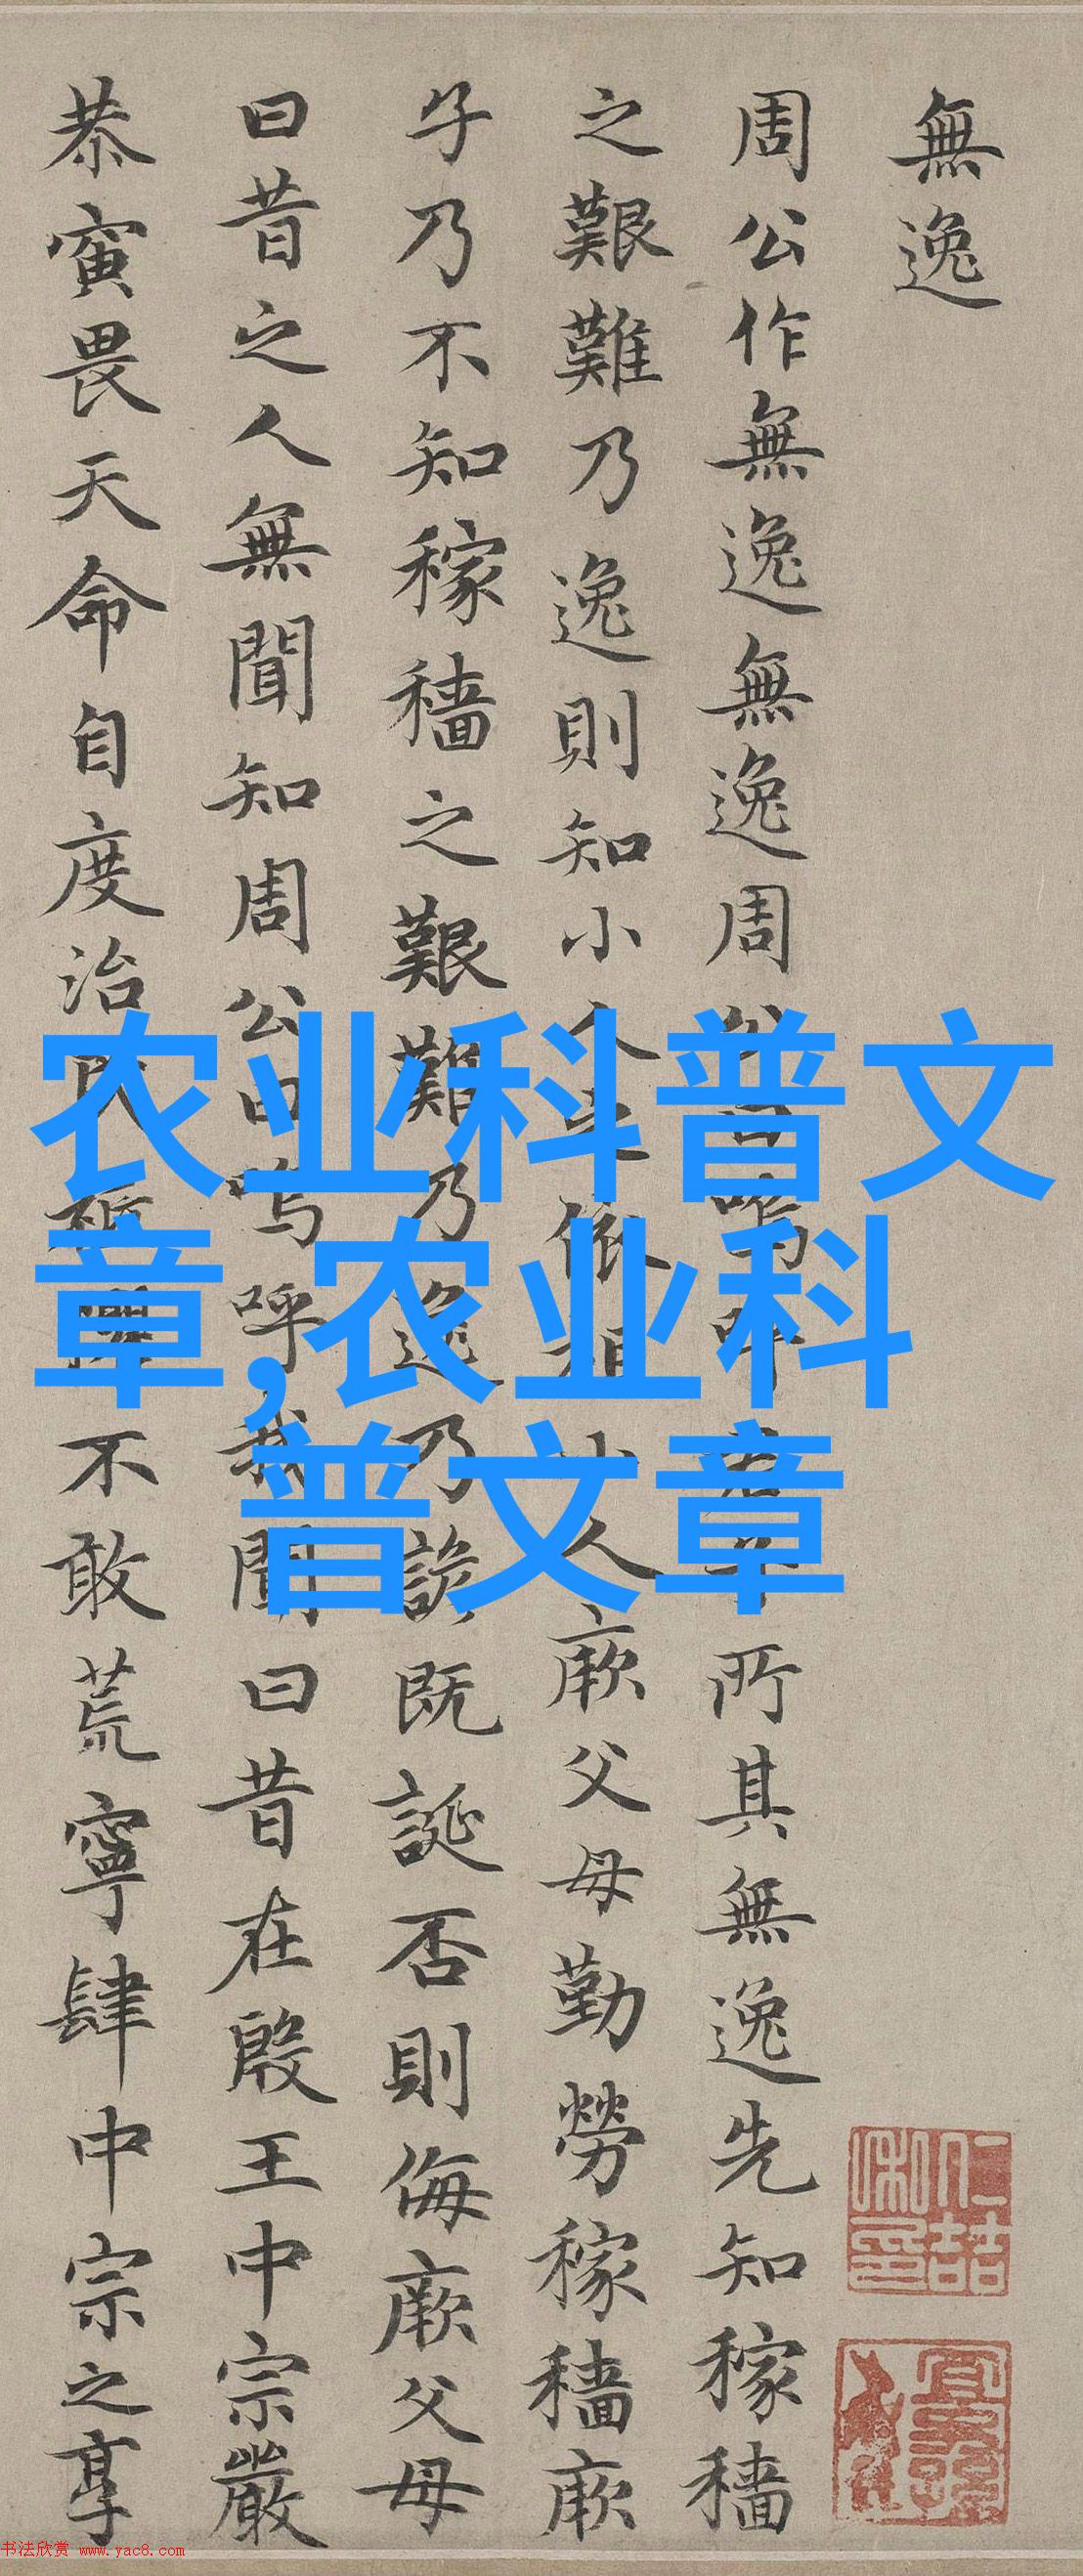 無逸
周公作無逸無逸周公曰嗚呼君子所其無逸先知稼穡
之艱難乃逸則知小人之依相小人厥父母勤勞稼穡厥
子乃不知稼穡之艱難乃逸乃諺既誕否則侮厥父母
曰昔之人無聞知周公曰嗚呼我聞曰昔在殷王中宗嚴
恭寅畏天命自度治民祗懼不敢荒寧肆中宗之享
农业科普文
章,农业科
普文章
书法欣赏 www.yac8.com